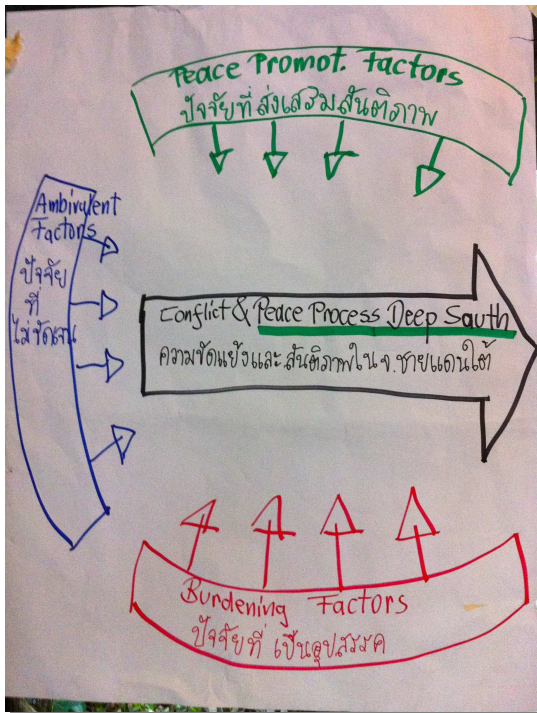 Peace Promot. Factors
ปัจจัยที่ส่งเสริมสันติภาพ
Ambivalent
Factors
ปัจจัย
ที่
ไม่ชัดเจน
Conflict & Peace Process Deep South
ความขัดแย้งและสันติภาพใน จ.ชายแดนใต้
Burdening Factors
ปัจจัยที่ เป็นอุปสรรค